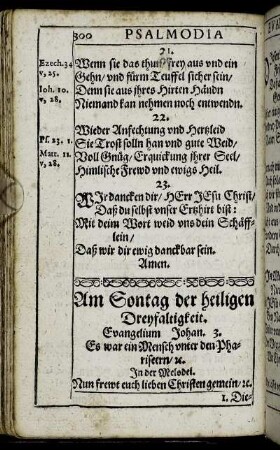 300 PSALMODIA
21.
Ezech. 34
v, 25.
Wenn sie das thun/ frey aus vnd ein
Gehn/ vnd fürm Teuffel sicher sein/
Joh. 10.
v, 28,
Denn sie aus jhres Hirten Händn
Niemand kan nehmen noch entwendn.
22.
Wieder Anfechung vnd Hertzleid
Ps. 23. 1.
Sie Trost solln han vnd gute Weid/
Matt. 11.
v, 28.
Voll Gnüg/ Erquickung jhrer Seel/
Himlische Frewd vnd ewigs Heil.
23.
WIr dancken dir/ HErr JEsu Christ/
Daß du selbst vnser Ertzhirt bist:
Mit deim Wort weid vns dein Schäff-
lein/
Daß wir dir ewig danckbar sein.
Amen.
Am Sontag der heiligen
Dreyfaltigkeit.
Evangelium Johan. 3.
Es war ein Mensch vnter den Pha-
riseern/ ꝛc.
In der Melodei.
Nun frewt euch lieben Christen gemein/ ꝛc.
1. Die-